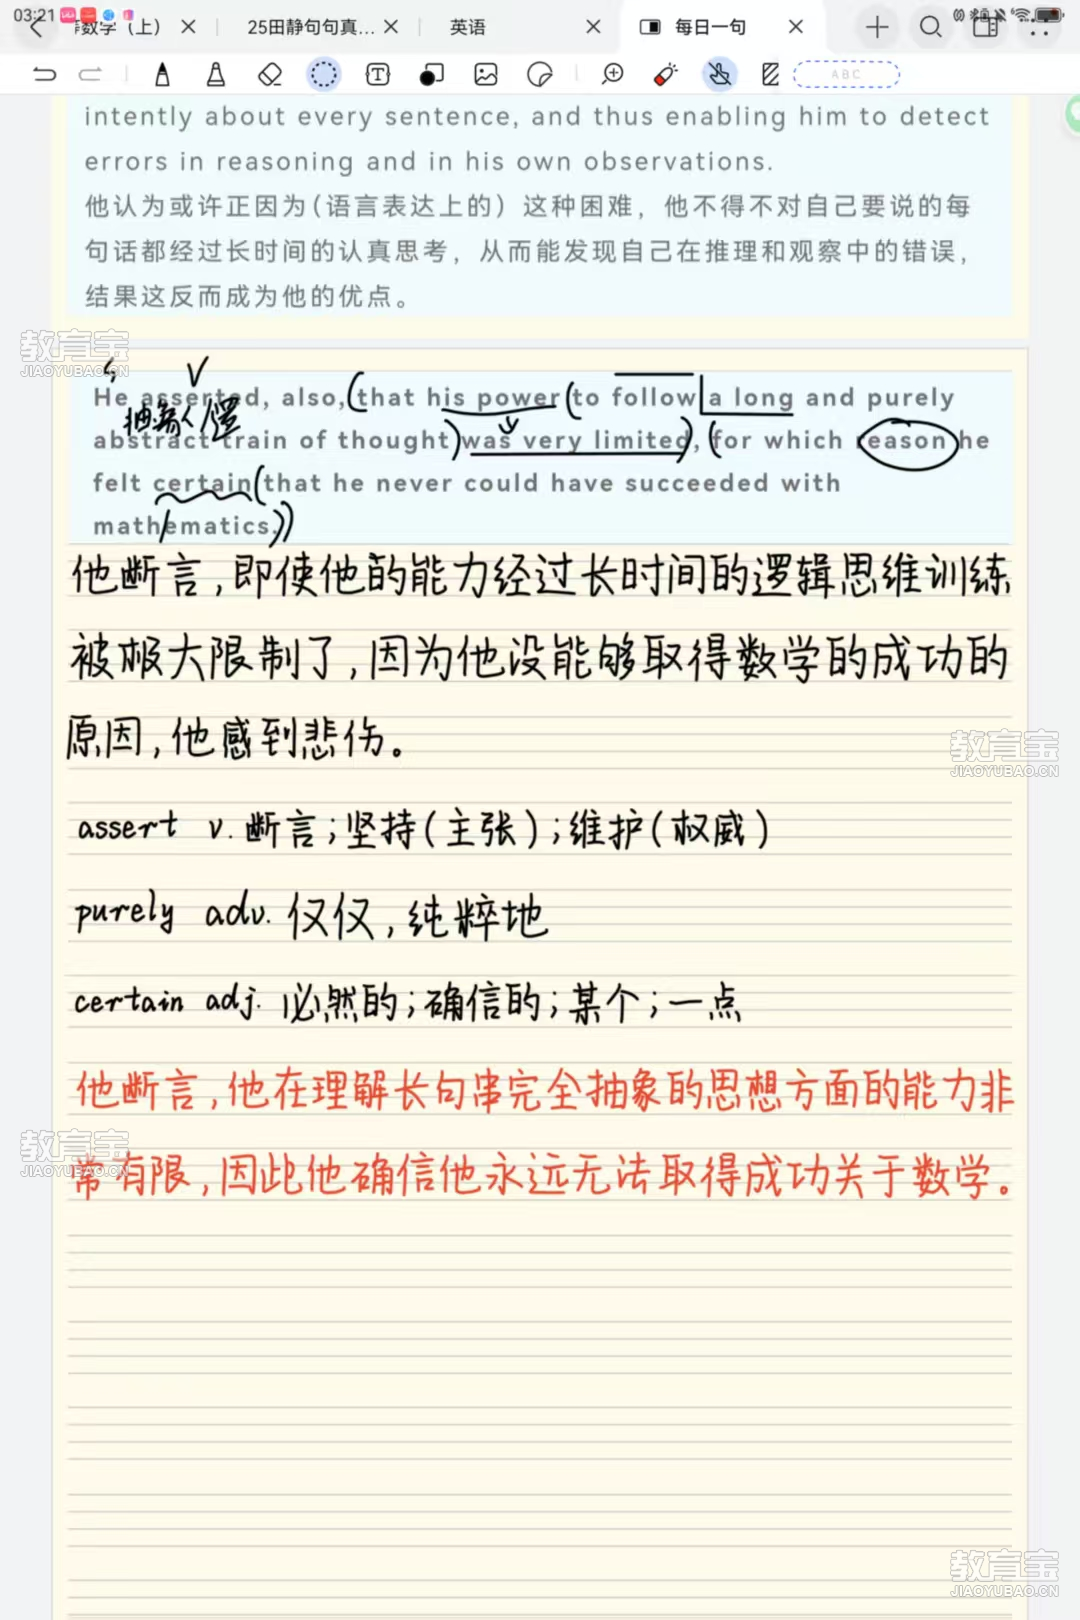 03:21
等数学（上）
25田静句句真...
英语
每日一句
ABC
intently about every sentence, and thus enabling him to detect
errors in reasoning and in his own observations.
他认为或许正因为(语言表达上的）这种困难，他不得不对自己要说的每
句话都经过长时间的认真思考，从而能发现自己在推理和观察中的错误，
结果这反而成为他的优点。
教育宝
JIAOYUBAO.CN
He asserted, also, (that his power (to follow a long and purely
abstract train of thought) was very limited), (for which reason he
felt certain (that he never could have succeeded with
mathematics.))
他断言,即使他的能力经过长时间的逻辑思维训练
被极大限制了,因为他没能够取得数学的成功的
原因,他感到悲伤。
教育宝
JIAOYUBAO.CN
assert v. 断言;坚持(主张);维护(权威)
purely adv. 仅仅,纯粹地
certain adj. 必然的;确信的;某个;一点
他断言,他在理解长句串完全抽象的思想方面的能力非
教育宝
JIAOYUBAO.CN
常有限,因此他确信他永远无法取得成功关于数学。
教育宝
JIAOYUBAO.CN